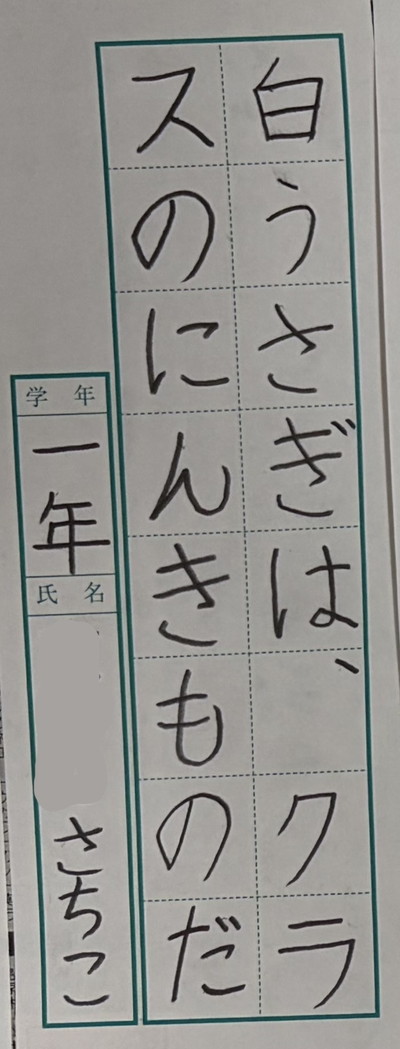 白うさぎは、クラ
スのにんきものだ
学年
一年
氏名
さちこ